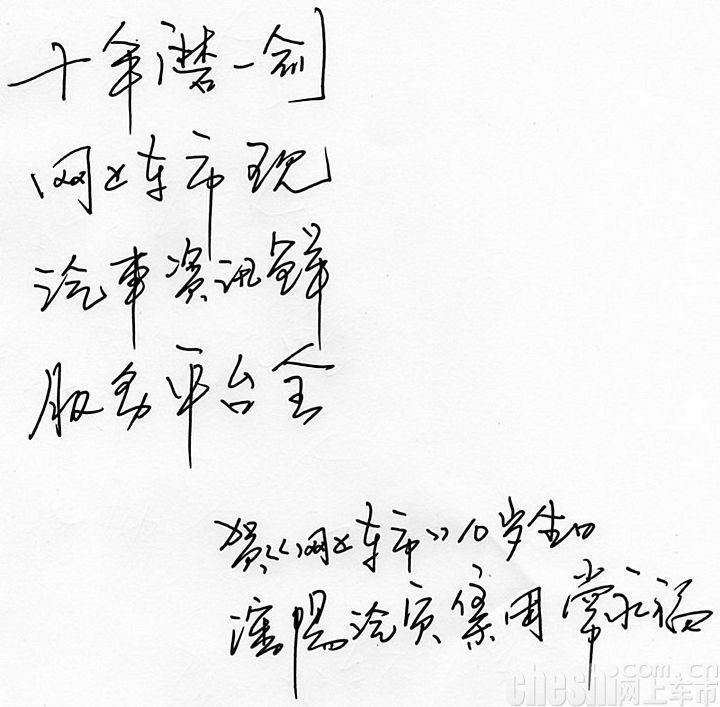 十年磨一剑
网上车市现
汽車资讯鲜
服务平台全
贺《网上车市》10岁生日
滙陽汽贸集团 常永福
cheshi.com.cn
网上车市